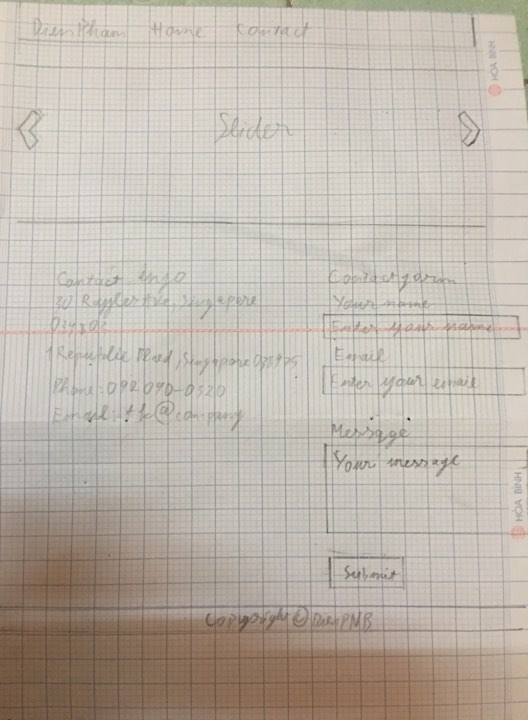 DienPham Home Contact
HOA BINH
Slider
Contact info
30 Raffles Ave, Singapore
039803
1 Republic Blvd, Singapore 038975
Phone: 092 090-0320
Email: @company
Contact form
Your name
Enter your name
Email
Enter your email
Message
Your message
HOA BINH
Submit
Copyright © DienPNB